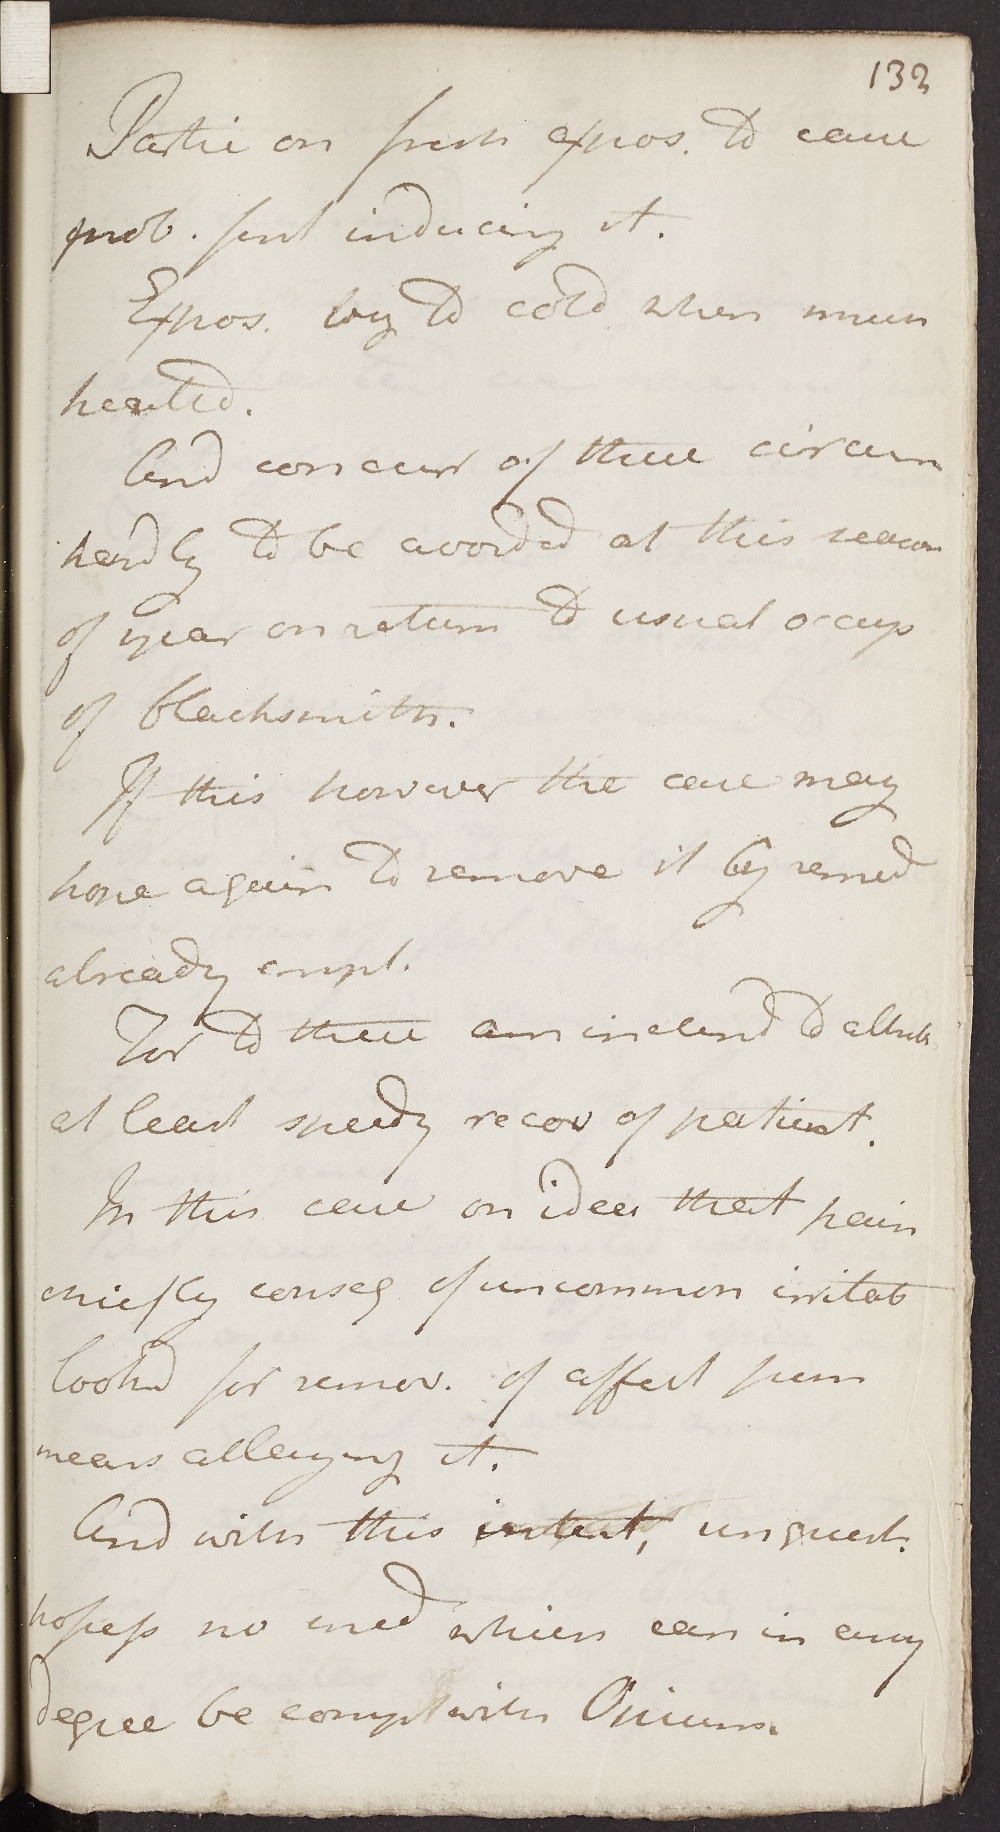 133
Partic on fresh expos. to cause
prob. first inducing it.
Expos. body to cold when much
heated.
And concur of these circum
hardly to be avoided at this season
of year on return to usual occup
of blacksmith.
If this however the case may
hope again to remove it by remed
already empl.
For to these am inclend to attrib
at least speedy recov of patient.
In this case on idea that pain
chiefly conseq of uncommon irritab
look'd for remov. of affect from
means allaying it.
And with this intent, unquest.
possess no med which can in any
degree be comp with Opium.